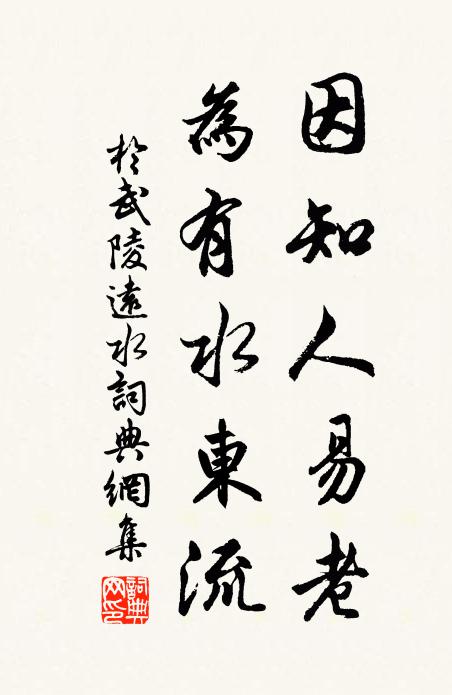 因知人易老
為有水東流
於武陵遠水詞典網集
詞典
网印